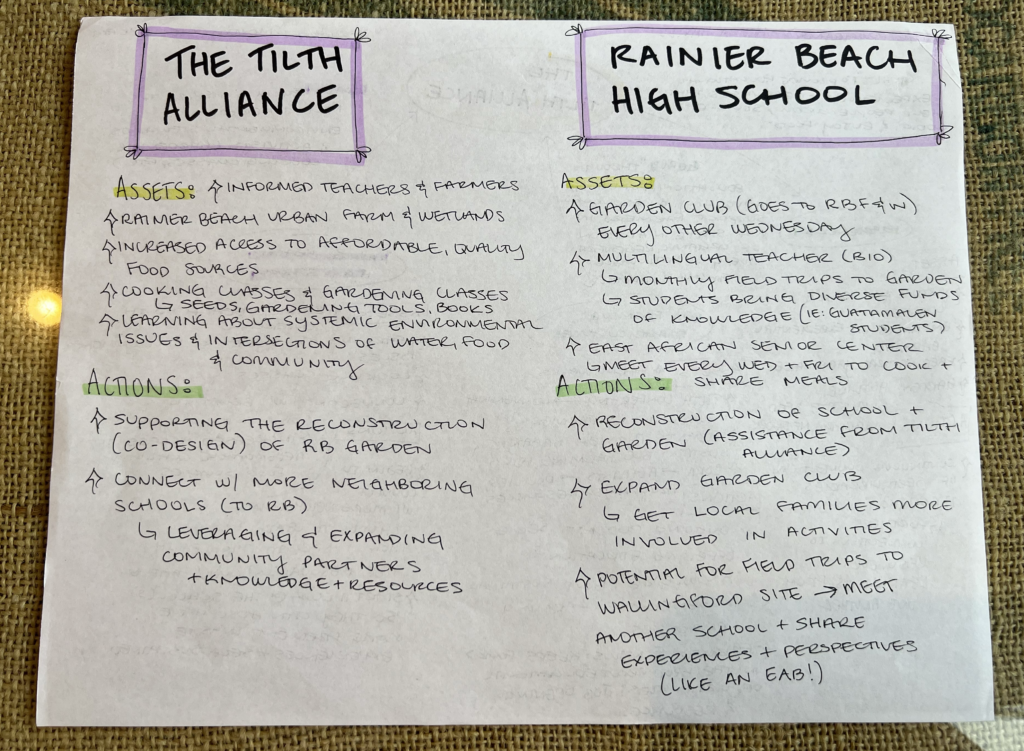 THE TILTH
ALLIANCE
ASSETS: INFORMED TEACHERS & FARMERS
RAINIER BEACH URBAN FARM & WETLANDS
INCREASED ACRESS TO AFFORDABLE, QUALITY
FOOD SOURCES
COOKING CLASSES & GARDENING CLASSES
↳ SEEDS, GARDENING TOOLS, BOOKS
LEARNING ABOUT SYSTEMIC ENVIRONMENTAL
ISSUES & INTERSECTIONS OF WATER, FOOD
& COMMUNITY
ACTIONS:
SUPPORTING THE RECONSTRUCTION
(CO-DESIGN) OF RB GARDEN
CONNECT W/ MORE NEIGHBORING
SCHOOLS (TO RB)
↳ LEVERAGING & EXPANDING
COMMUNITY PARTNERS
+ KNOWLEDGE + RESOURCES
RAINIER BEACH
HIGH SCHOOL
ASSETS:
GARDEN CLUB (GOES TO RBF & W)
EVERY OTHER WEDNESDAY
MULTILINGUAL TEACHER (BIO)
↳ MONTHLY FIELD TRIPS TO GARDEN
↳ STUDENTS BRING DIVERSE FUNDS
OF KNOWLEDGE (IE: GUATAMALEN
STUDENTS)
EAST AFRICAN SENIOR CENTER
↳ MEET EVERY WED + FRI TO COOK +
SHARE MEALS
ACTIONS:
RECONSTRUCTION OF SCHOOL +
GARDEN (ASSISTANCE FROM TILTH
ALLIANCE)
EXPAND GARDEN CLUB
↳ GET LOCAL FAMILIES MORE
INVOLVED IN ACTIVITIES
POTENTIAL FOR FIELD TRIPS TO
WALLINGFORD SITE → MEET
ANOTHER SCHOOL + SHARE
EXPERIENCES + PERSPECTIVES
(LIKE AN EAB!)